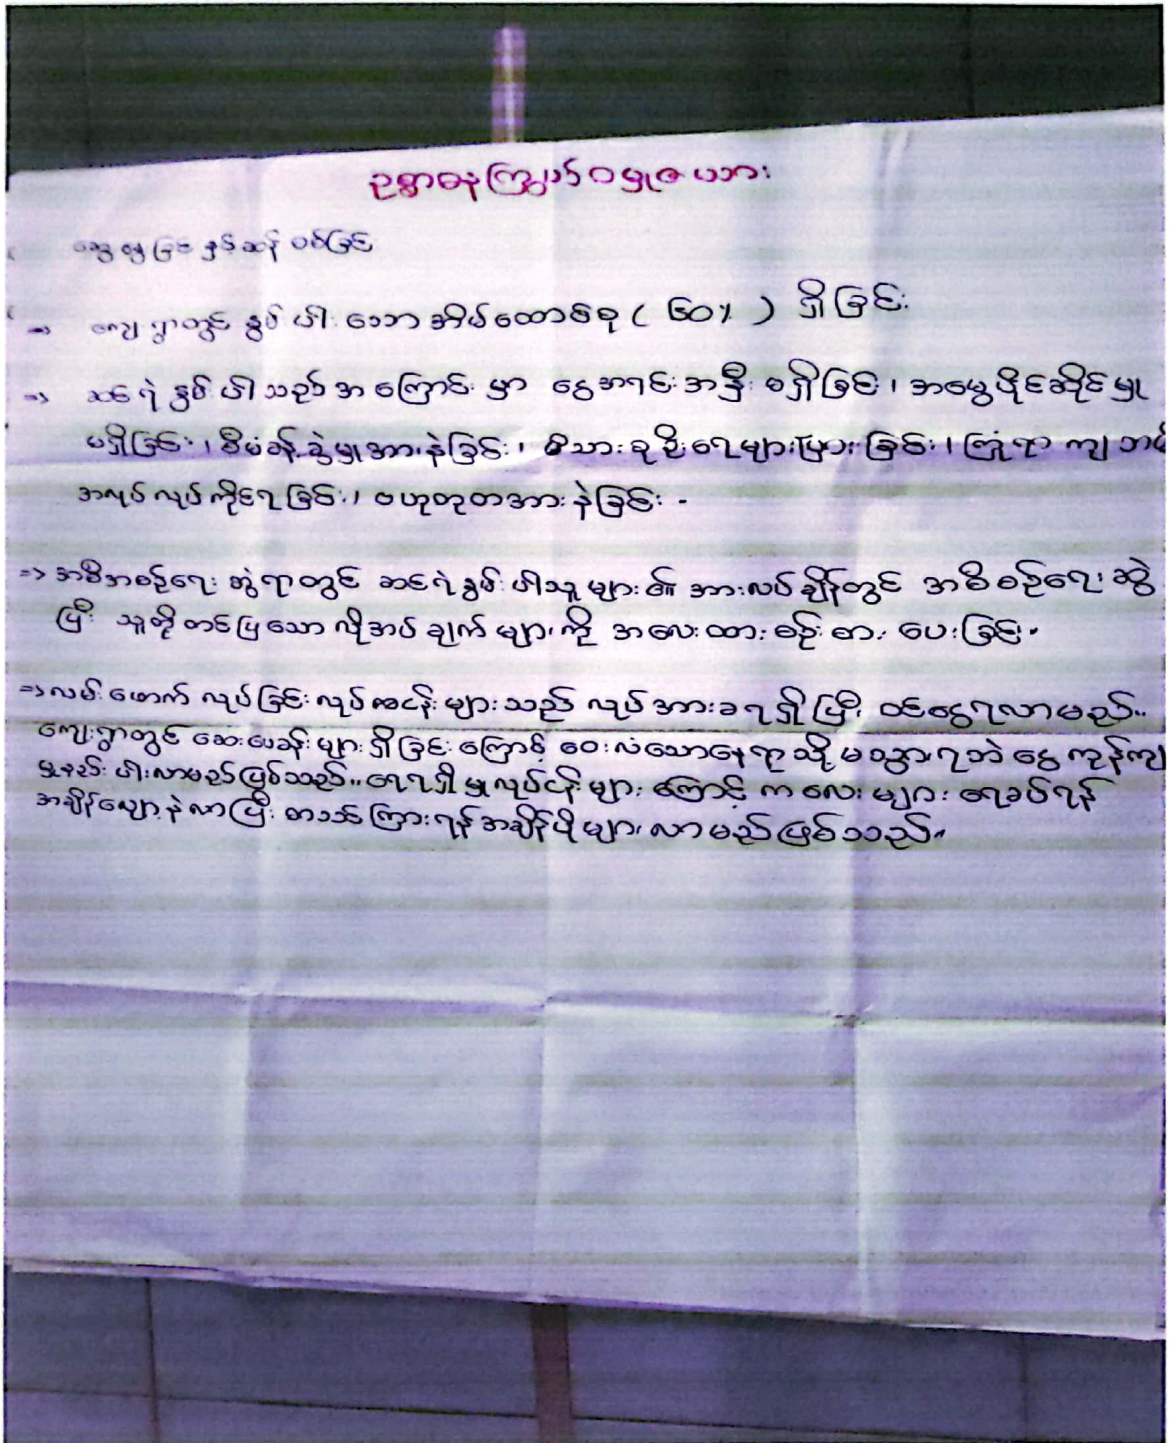 ဥစ္စာဓနကြွယ်ဝမှုဇယား
ဆွေးနွေးခြင်း နှင့် ဆန်းစစ်ခြင်း
=> ကျေးရွာတွင် နွမ်းပါးသောအိမ်ထောင်စု ( ၆၀% ) ရှိခြင်း
=> ဆင်းရဲနွမ်းပါးသည့်အကြောင်းမှာ ငွေအရင်းအနှီးမရှိခြင်း၊ အမွေပိုင်ဆိုင်မှု
မရှိခြင်း၊ စီမံခန့်ခွဲမှုအားနဲခြင်း၊ မိသားစုဦးရေများပြားခြင်း၊ ကြုံရာကျဘမ်း
အလုပ်လုပ်ကိုင်ရခြင်း၊ ဗဟုသုတအားနဲခြင်း -
=> အစီအစဉ်ရေးဆွဲရာတွင် ဆင်းရဲနွမ်းပါးသူများ၏ အားလပ်ချိန်တွင် အစီစဉ်ရေးဆွဲ
ပြီး သူတို့တင်ပြသောလိုအပ်ချက်များကို အလေးထားစဉ်းစားပေးခြင်း.
=> လမ်းဖောက်လုပ်ခြင်းလုပ်ငန်းများသည် လုပ်အားခရရှိပြီး ဝင်ငွေရလာမည်..
ကျေးရွာတွင် ဆေးပေးခန်းများရှိခြင်းကြောင့် ဝေးလံသောနေရာသို့ မသွားရဘဲ ငွေကုန်ကျ
မှုနည်းပါးလာမည်ဖြစ်သည်.. ရေရရှိမှုလုပ်ငန်းများကြောင့် ကလေးများ ရေခပ်ရန်
အချိန်လျော့နဲလာပြီး စာသင်ကြားရန်အချိန်ပိုများလာမည်ဖြစ်သည်..